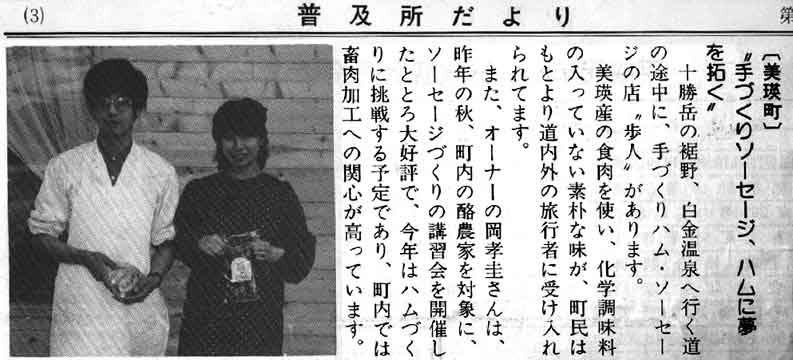 (3)
普及所だより
第
〔美瑛町〕
〝手づくりソーセージ、ハムに夢
を拓く〟
十勝岳の裾野、白金温泉へ行く道
の途中に、手づくりハム・ソーセー
ジの店〝歩人〟があります。
美瑛産の食肉を使い、化学調味料
の入っていない素朴な味が、町民は
もとより道内外の旅行者に受け入れ
られてます。
また、オーナーの岡孝圭さんは、
昨年の秋、町内の酪農家を対象に、
ソーセージづくりの講習会を開催し
たところ大好評で、今年はハムづく
りに挑戦する予定であり、町内では
畜肉加工への関心が高っています。